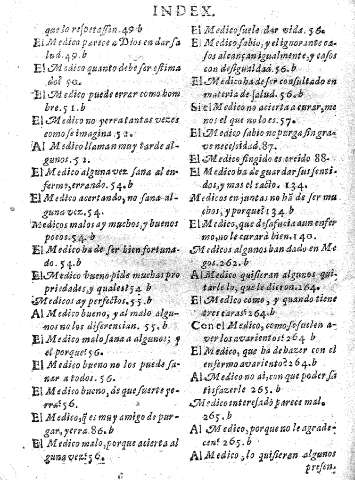 INDEX.
que lo respetassen. 49. b
El Medico parece a Dios en dar sa
lud. 49. b
El Medico quanto debe ser estima
do? 50.
El Medico puede errar como hom
bre. 51. b
El Medico no yerra tantas vezes
como se imagina. 52.
Al Medico llaman muy tarde al-
gunos. 52.
El Medico alguna vez sana al en-
fermo, errando. 54. b
El Medico acertando, no sana al-
guna vez. 54.
Medicos malos ay muchos, y buenos
pocos. 54. b
El Medico ha de ser bien fortuna-
do. 54. b
El Medico bueno pide muchas pro
priedades, y quales? 54 b
Medicos ay perfectos. 55. b
Al Medico bueno, y al malo algu-
nos no los diferencian. 55. b
El Medico malo sana a algunos; y
el porque? 56.
El Medico bueno no los puede sa-
nar a todos. 56.
El Medico bueno, de que suerte ye-
rra? 56.
El Medico, q̃ es muy amigo de pur-
gar, yerra. 86. b
El Medico malo, porque acierta al
guna vez? 56.
El Medico suele dar vida. 56.
El Medico sabio, y el ignorante ca-
sos alcançan igualmente, y casos
con desigualdad. 56. b
El Medico ha de ser consultado en
materia de salud. 56. b
Si el Medico no acierta a curar, me
nos el que no lo es. 57.
El Medico sabio no purga sin gra-
ve necessidad. 87.
El Medico fingido es creido 88.
El Medico ha de guardar sus senti-
dos, y mas el tacto. 134.
Medicos en juntas no hã de ser mu
chos, y porque? 134. b
El Medico, que desafucia a un enfer
mo, no le curarà bien. 140.
Medicos algunos han dado en Me
gos. 262. b
Al Medico quisieran algunos qui-
tarle lo, que le dieron. 264.
El Medico como, y quando tiene
tres caras? 264. b
Con el Medico, como se suelen a-
ver los avarientos? 264 b
El Medico, que ha de hazer con el
enfermo avariento? 264. b
Al Medico no ai, con que poder sa
tisfazerle 265. b
Medico interesado parece mal.
265. b
Al Medico, porque no le agrade-
cen? 265. b
Al Medico, lo quisieran algunos
presen-